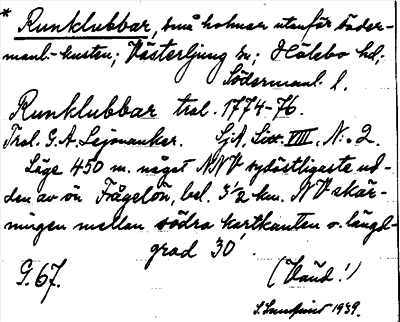 * Runklubbar, små holmar utanför Söder-
manl.-kusten; Västerljung sn; Hölebo hd;
Södermanl. l.
Runklubbar trol. 1774-76.
Trol. G. A. Lejonanker. SjA, Litt. VIII, N:o 2.
Läge 450 m. något NNV sydöstligaste ud-
den av ön Fågelön, bel. 3 1/2 km. NV skär-
ningen mellan södra kartkanten o. längd-
grad 30'.
G. 67. (Vänd!)
1939.